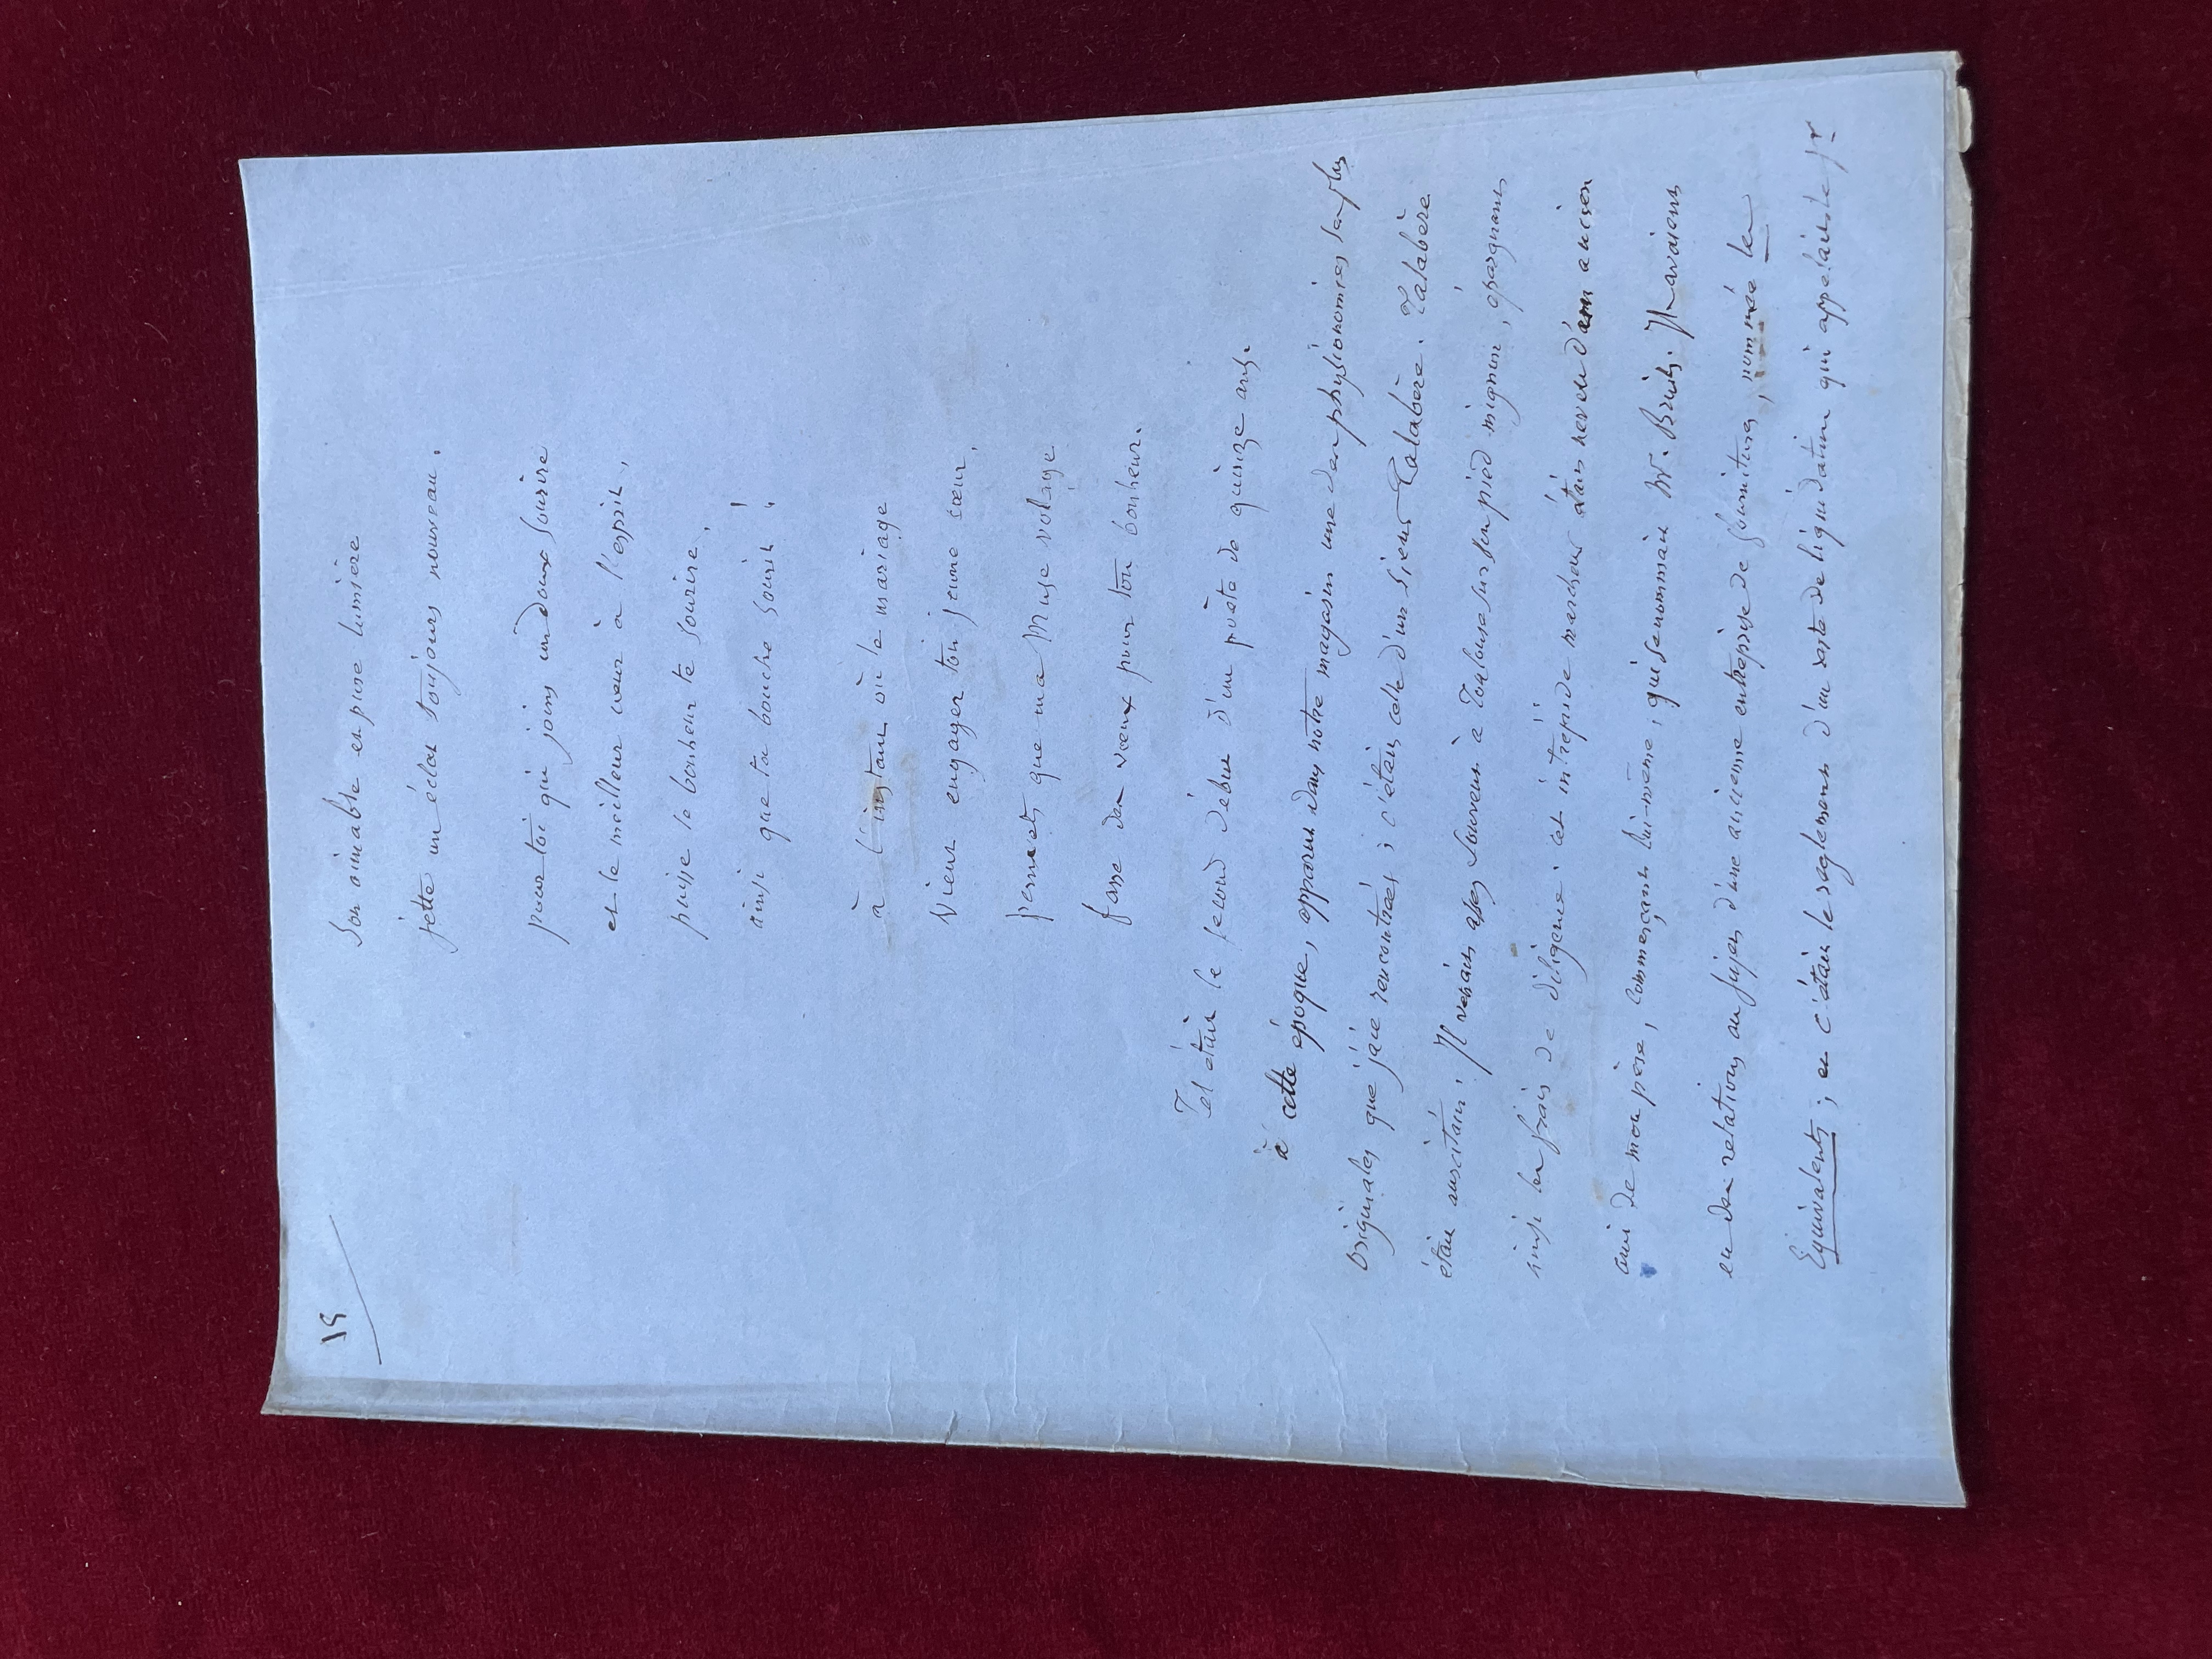 15
Son aimable et pure lumière
jette un éclat toujours nouveau.
pour toi qui joins un doux sourire
et le meilleur cœur à l'esprit,
puisse le bonheur te sourire,
ainsi que ta bouche sourit !
à l'instant où le mariage
vient engager ton jeune cœur,
permets que ma Muse volage
fasse des vœux pour ton bonheur.
Tel était le second début d'un poète de quinze ans.
à cette époque, apparut dans notre magasin une des physionomies les plus
originales que j'aie rencontrées ; c'était celle d'un sieur Talabère. Talabère
était auscitain. Il venait assez souvent à Toulouse sur son pied mignon, épargnant
ainsi les frais de diligence. cet intrépide marcheur était neveu d'un ancien
ami de mon père, commerçant lui-même, qui se nommait M. Ils avaient
eu des relations au sujet d'une ancienne entreprise de fournitures, nommée les
Equivalents ; et c'était le règlement d'un reste de liquidation qui appelait le sr